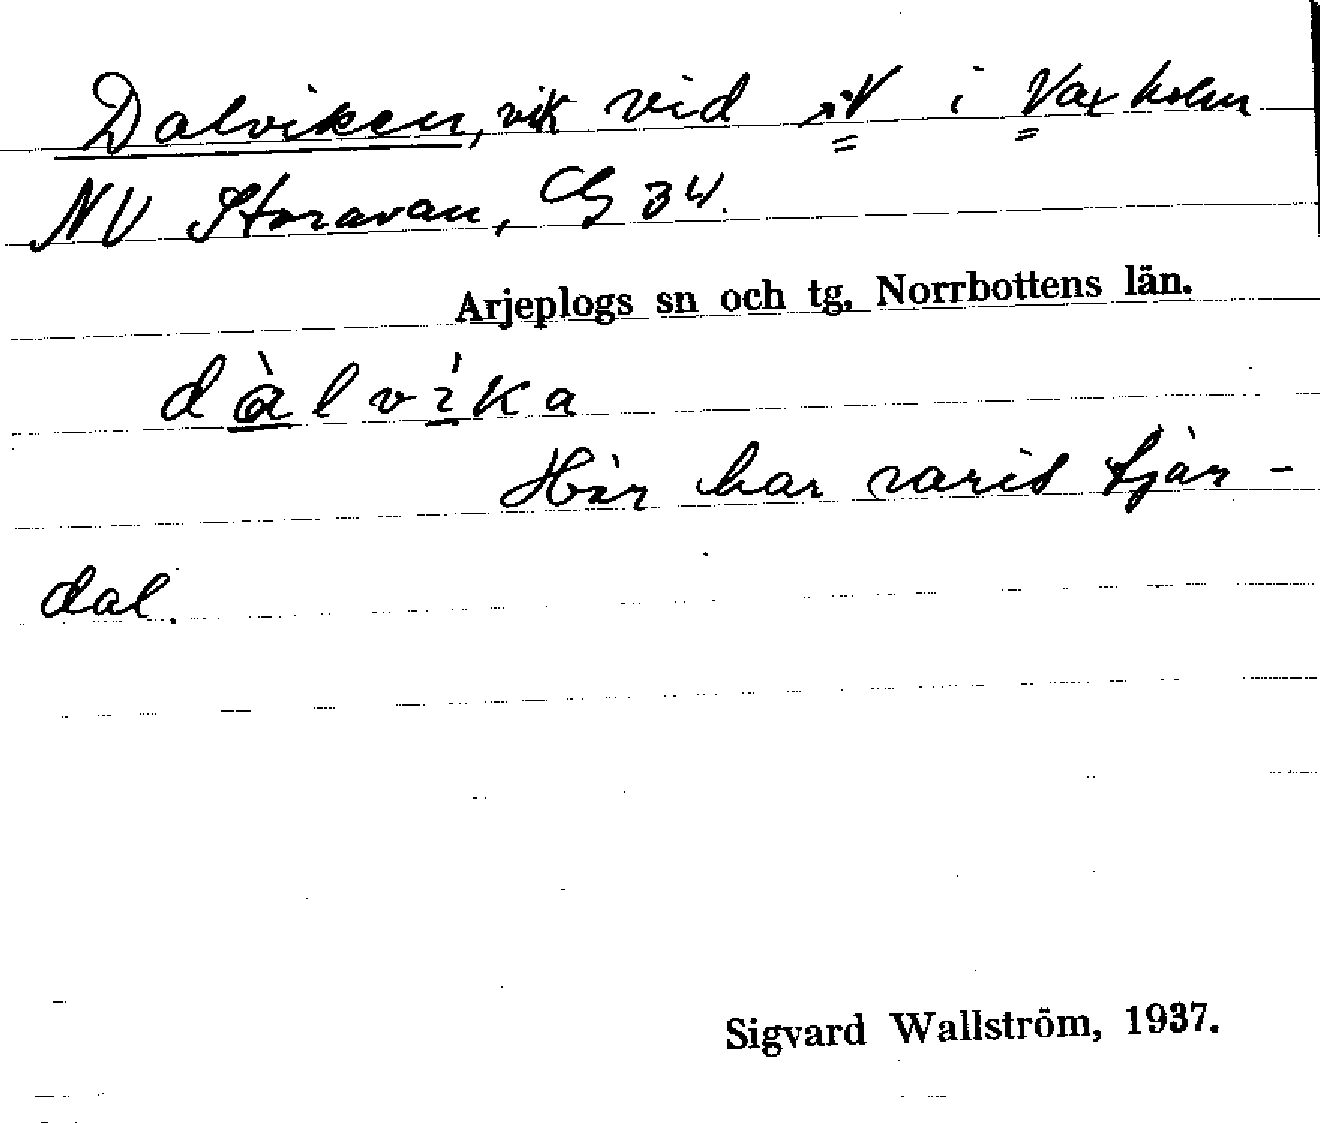 Dalviken, vik vid i Vaxholm
NV Storavan, G 34.
Arjeplogs sn och tg, Norrbottens län.
dàlvíka
Här har varit tjär-
dal.
Sigvard Wallström, 1937.